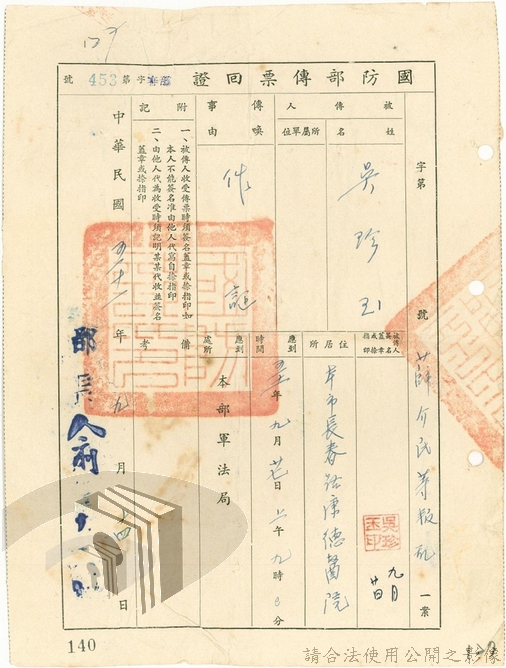 國防部傳票回證
字第453號
字第
號
薛介民等叛亂
一案
被傳人
姓名
吳珍玉
所屬單位
被傳人簽名蓋章或捺指印
吳珍玉印
九月廿日
住居所
本市長春路康德醫院
傳喚事由
作証
應到時間
五十一年九月廿 日上午九時0分
應到處所
本部軍法局
附記
一、被傳人收受傳票時須簽名蓋章或捺指印如
本人不能簽名准由他人代寫自捺指印
二、由他人代為收受時須記明某某代收並簽名
蓋章或捺指印
備考
中華民國五十一年九月十四日
部長
140
請合法使用公開之影像